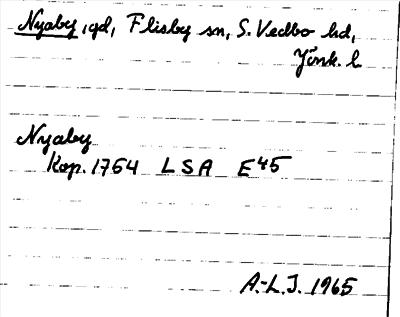 Nyaby, gd, Flisby sn, S. Vedbo hd,
Jönk. l.
Nyaby
Kop. 1764 LSA E45
A.-L.J. 1965